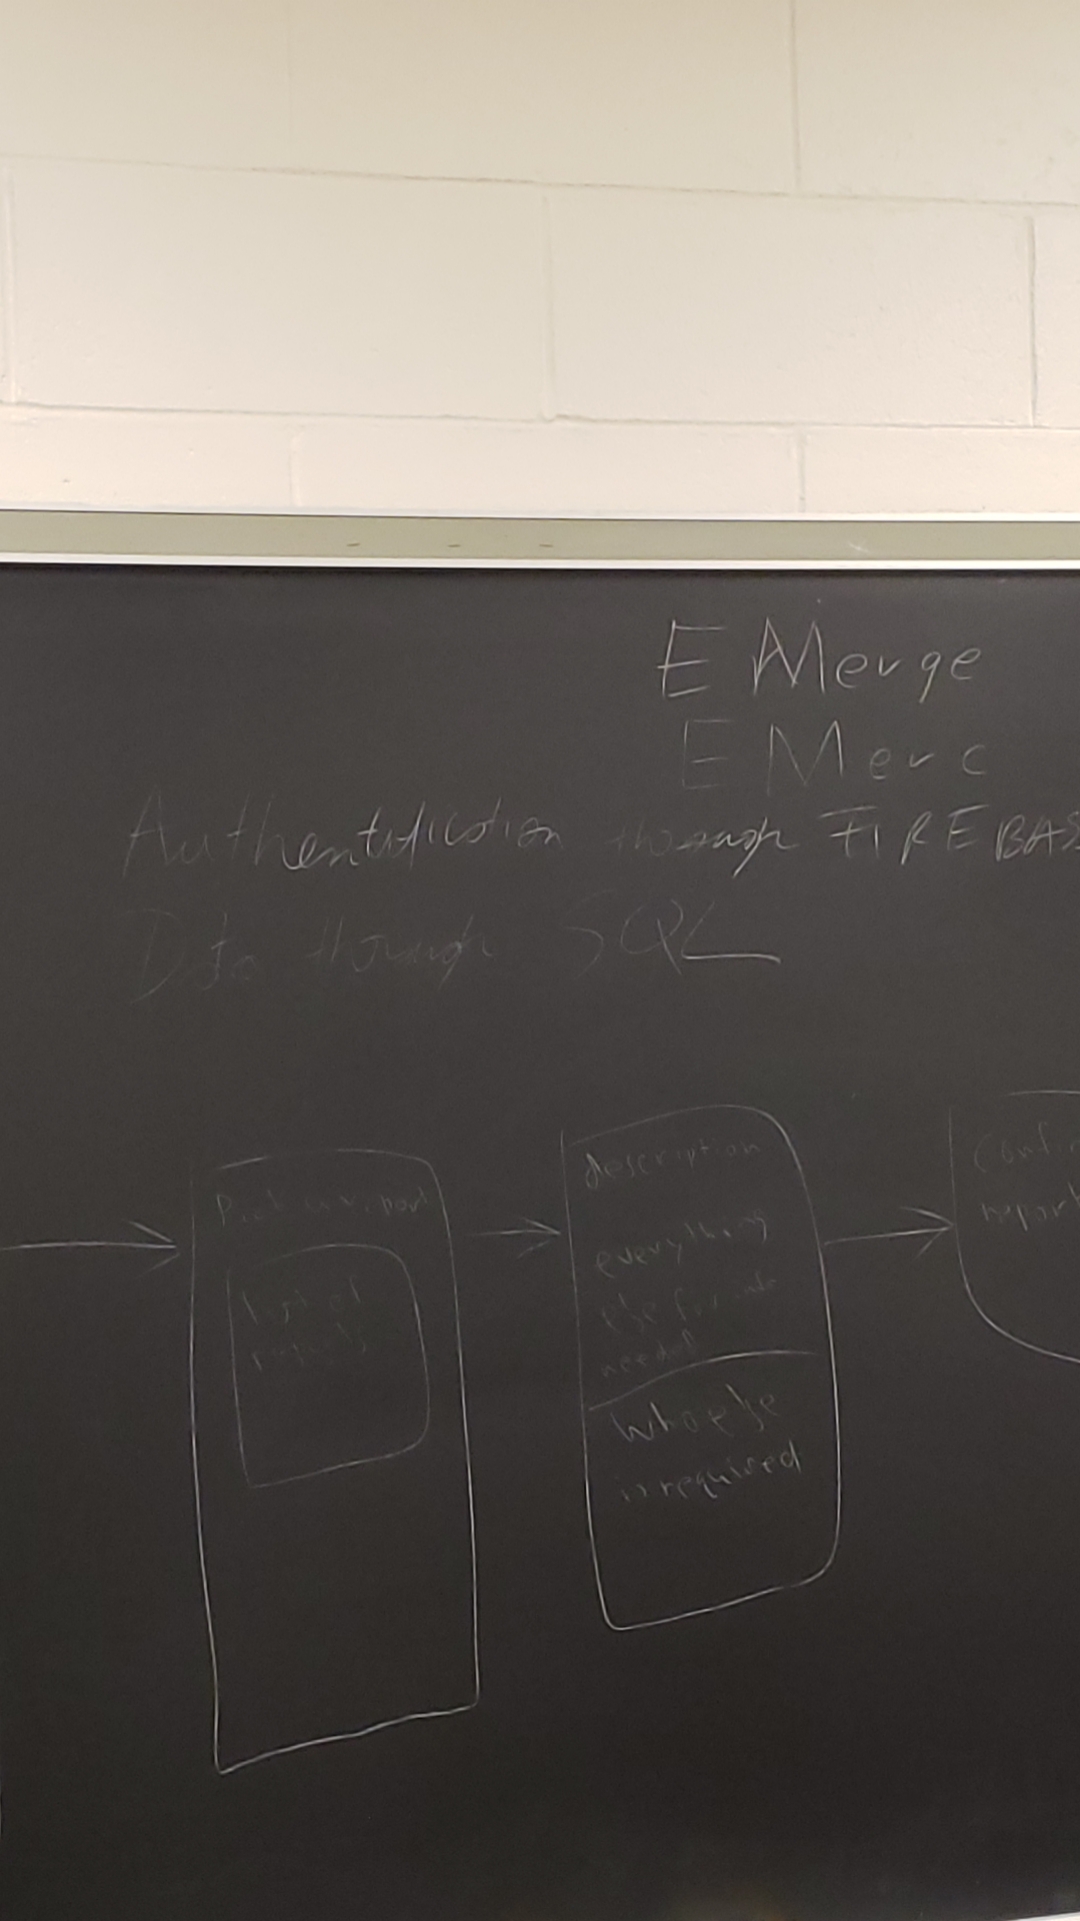 EMerge
EMerc
Authentification through FIREBAS
Data through SQL
Pick a report
list of
description
everything
else for info
needed
who else
is required
Confi
report